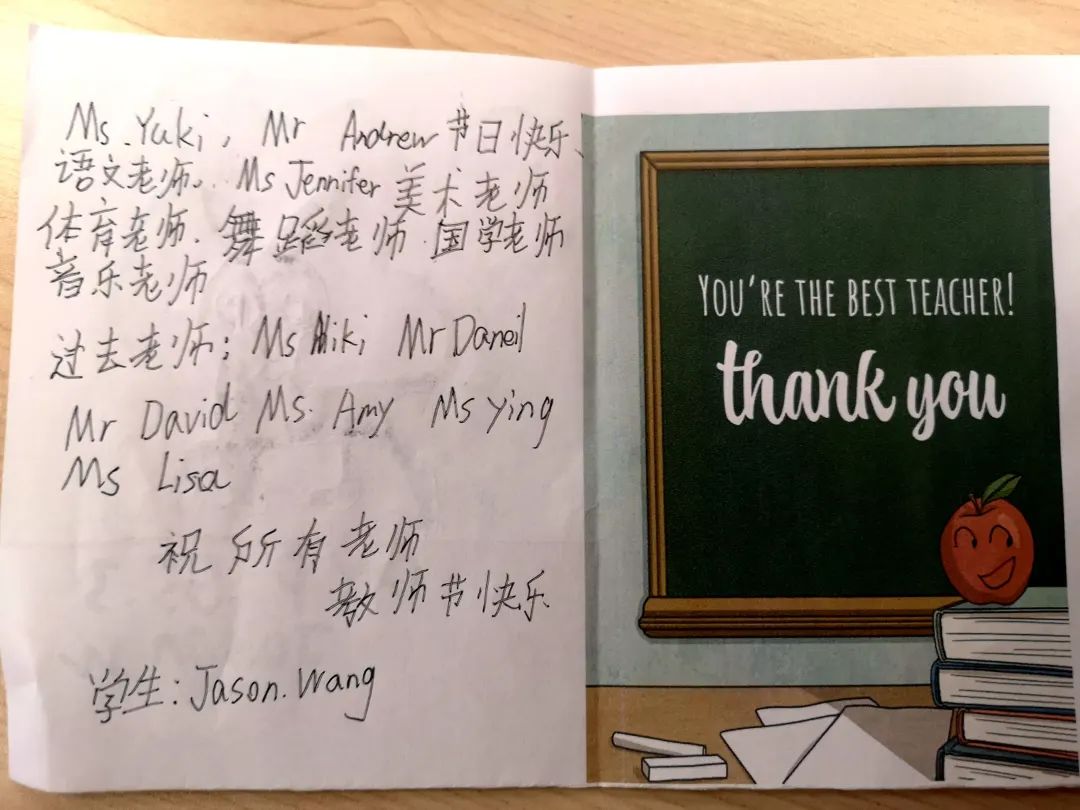 Ms.Yuki, Mr Andrew 节日快乐、
语文老师、Ms Jennifer 美术老师
体育老师、舞蹈老师、国学老师
音乐老师
过去老师：Ms Niki Mr Daneil
Mr David Ms. Amy Ms ying
Ms Lisa
祝所有老师
教师节快乐
学生：Jason.Wang
YOU'RE THE BEST TEACHER!
thank you